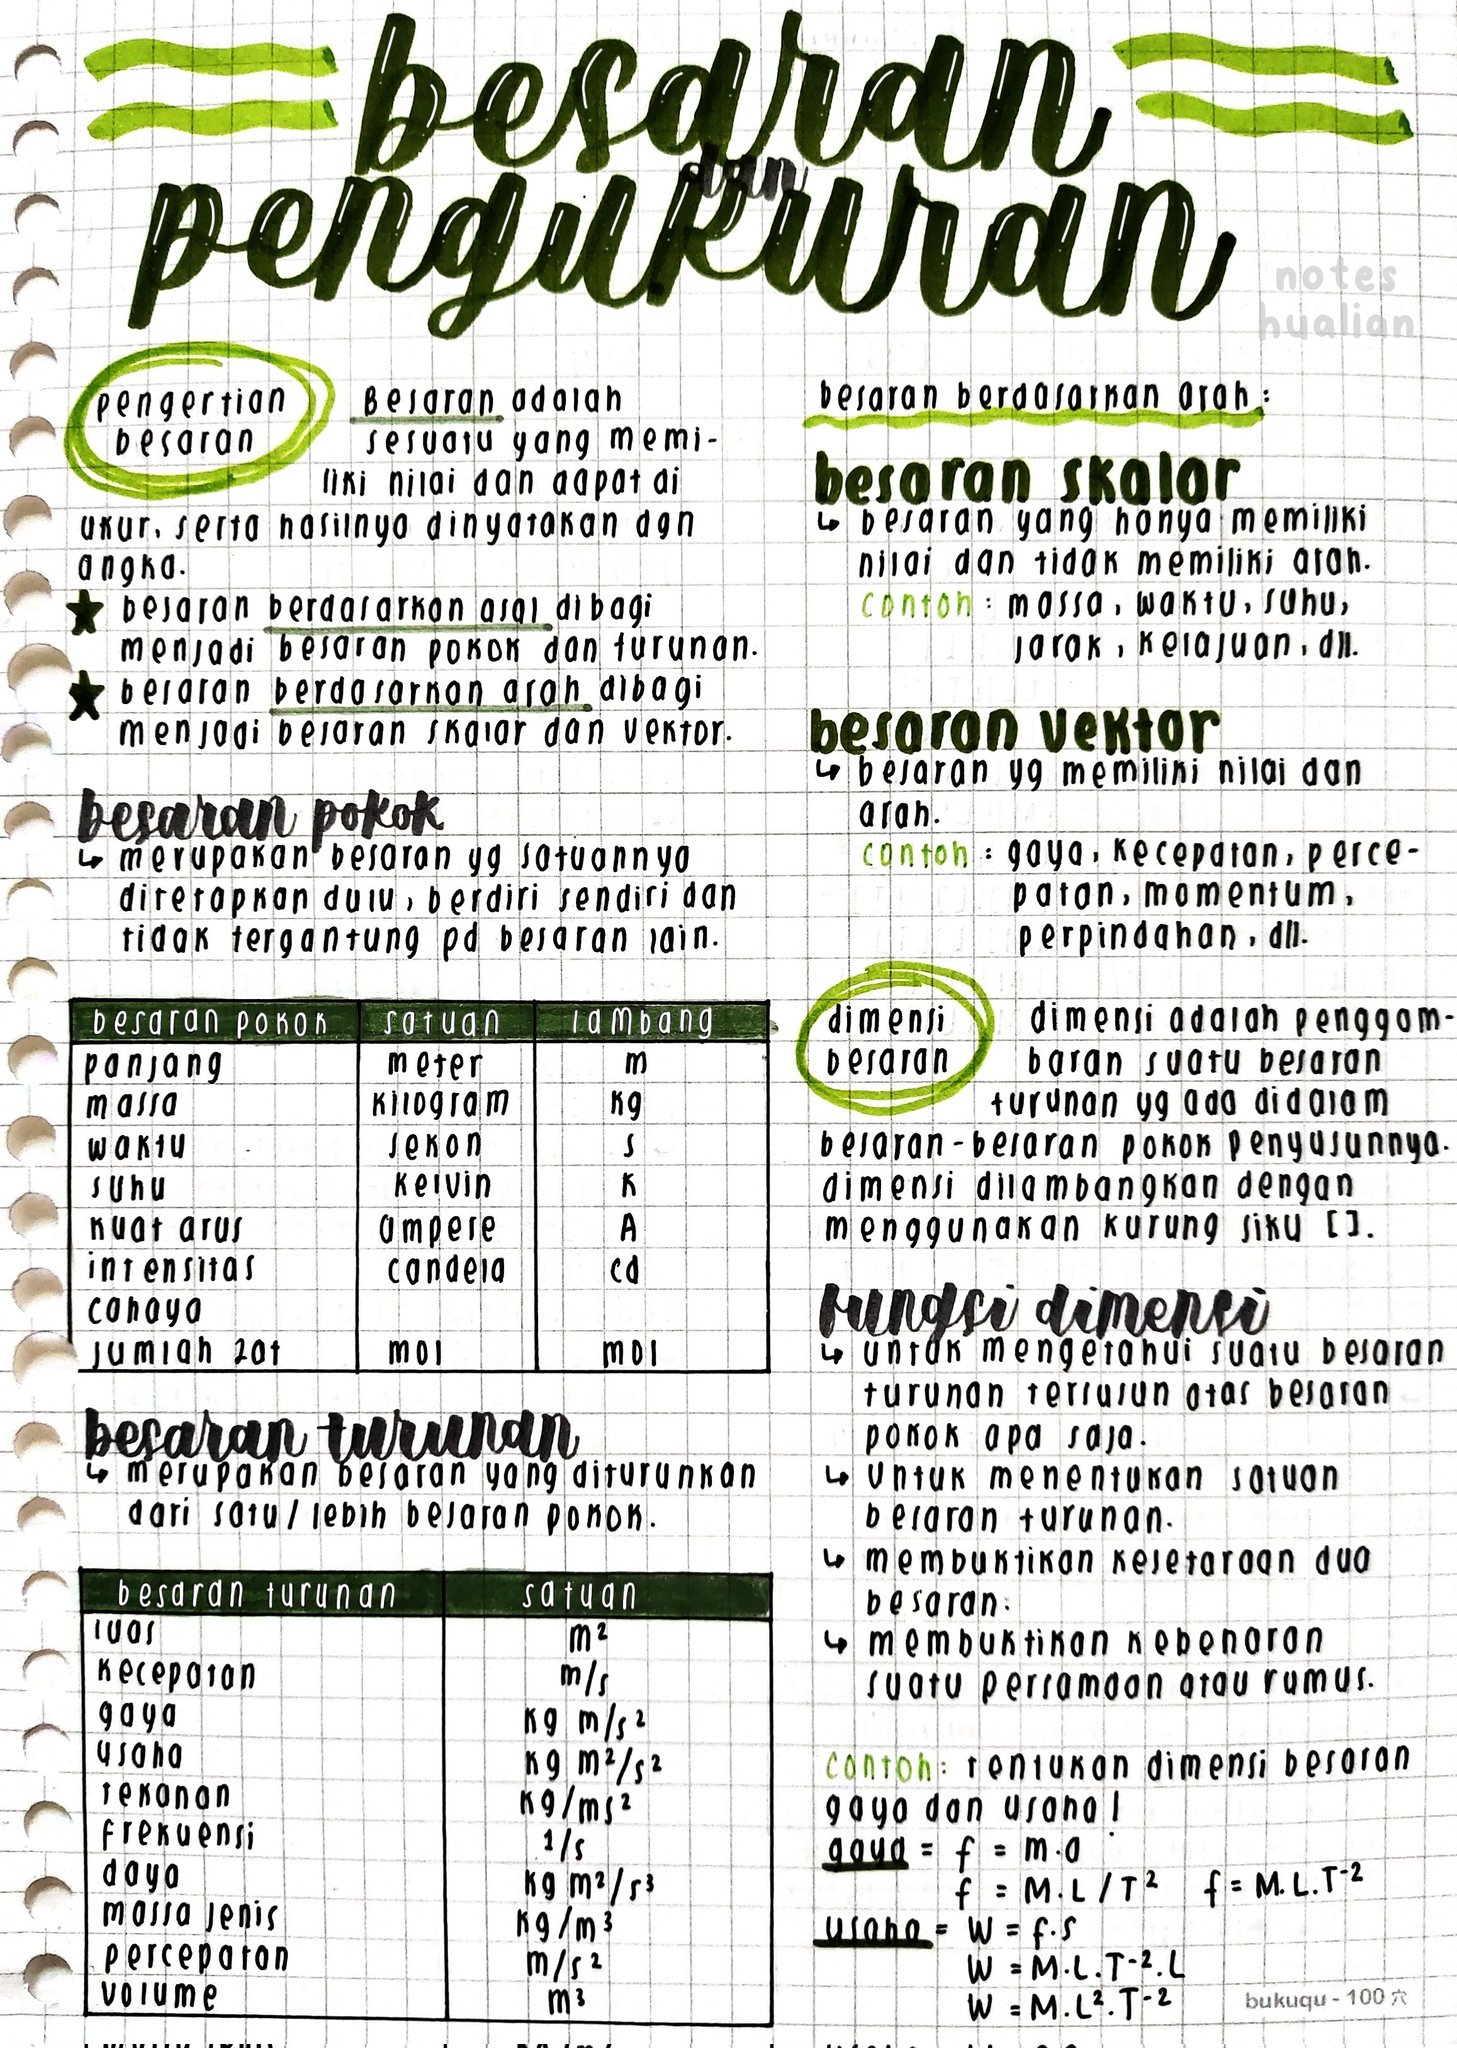 besaran
dan
pengukuran
notes
hualian
pengertian
besaran
Besaran adalah
sesuatu yang memi-
liki nilai dan dapat di
ukur, serta hasilnya dinyatakan dgn
angka.
★ besaran berdasarkan asal dibagi
menjadi besaran pokok dan turunan.
★ besaran berdasarkan arah dibagi
menjadi besaran skalar dan vektor.
besaran pokok
↳ merupakan besaran yg satuannya
ditetapkan dulu, berdiri sendiri dan
tidak tergantung pd besaran lain.
besaran pokok satuan lambang
panjang meter m
massa kilogram kg
waktu sekon s
suhu kelvin K
kuat arus ampere A
intensitas candela cd
cahaya
jumlah zat mol mol
besaran turunan
↳ merupakan besaran yang diturunkan
dari satu/lebih besaran pokok.
besaran turunan satuan
luas m²
kecepatan m/s
gaya kg m/s²
usaha kg m²/s²
tekanan kg/ms²
frekuensi 1/s
daya kg m²/s³
massa jenis kg/m³
percepatan m/s²
volume m³
besaran berdasarkan arah:
besaran skalar
↳ besaran yang hanya memiliki
nilai dan tidak memiliki arah.
contoh: massa, waktu, suhu,
jarak, kelajuan, dll.
besaran vektor
↳ besaran yg memiliki nilai dan
arah.
contoh: gaya, kecepatan, perce-
patan, momentum,
perpindahan, dll.
dimensi
besaran
dimensi adalah penggam-
baran suatu besaran
turunan yg ada didalam
besaran-besaran pokok penyusunnya.
dimensi dilambangkan dengan
menggunakan kurung siku [].
fungsi dimensi
↳ untuk mengetahui suatu besaran
turunan tersusun atas besaran
pokok apa saja.
↳ untuk menentukan satuan
besaran turunan.
↳ membuktikan kesetaraan dua
besaran.
↳ membuktikan kebenaran
suatu persamaan atau rumus.
contoh: tentukan dimensi besaran
gaya dan usaha!
gaya = f = m.a
f = M.L/T² f = M.L.T⁻²
usaha = W = f.s
W = M.L.T⁻².L
W = M.L².T⁻²
bukuqu - 100 穴